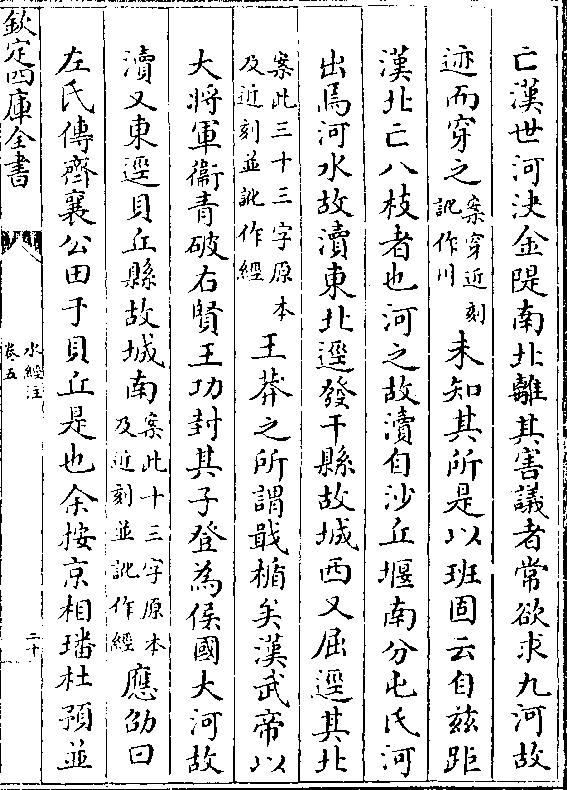 亡漢世河決金隄南北離其害議者常欲求九河故
迹而穿之案穿近刻訛作川未知其所是以班固云自兹距
漢北亡八枝者也河之故瀆自沙丘堰南分屯氏河
出焉河水故瀆東北逕發干縣故城西又屈逕其北
案此三十三字原本及近刻並訛作經王莽之所謂戢楯矣漢武帝以
大將軍衞青破右賢王功封其子登為侯國大河故
瀆又東逕貝丘縣故城南案此十三字原本及近刻並訛作經應劭曰
左氏傳齊襄公田于貝丘是也余按京相璠杜預並
欽定四庫全書
水經注
卷五
二十